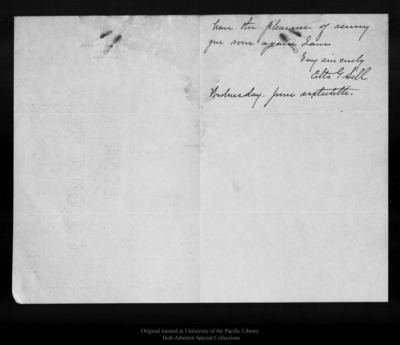 have the pleasure of seeing
you soon again I am
Very sincerely
Etta G. Sill
Wednesday. June sixteenth.
Original located at University of the Pacific Library
Holt-Atherton Special Collections